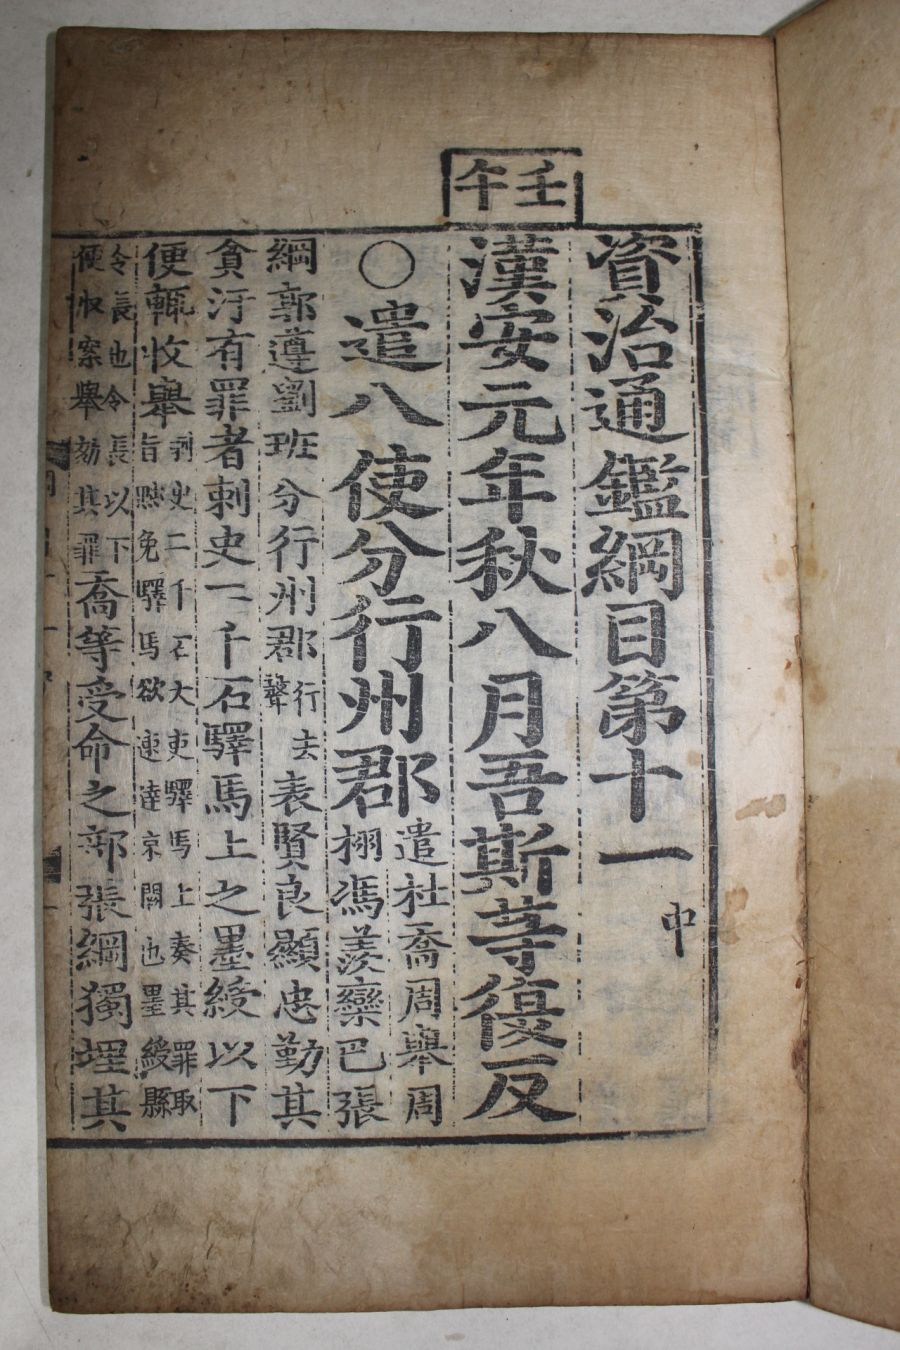 壬午
資治通鑑綱目第十一 中
漢安元年秋八月吾斯等復反
〇遣八使分行州郡遣杜喬周舉周
栩馮羨欒巴張
綱郭遵劉班分行州郡行去
聲表賢良顯忠勤其
貪汙有罪者刺史二千石驛馬上之墨綬以下
便輒收舉刺史二千石大吏驛馬上奏其罪取
旨黜免驛馬欲速達京闕也墨綬縣
令長也令長以下
便收案舉劾其罪喬等受命之部張綱獨埋其